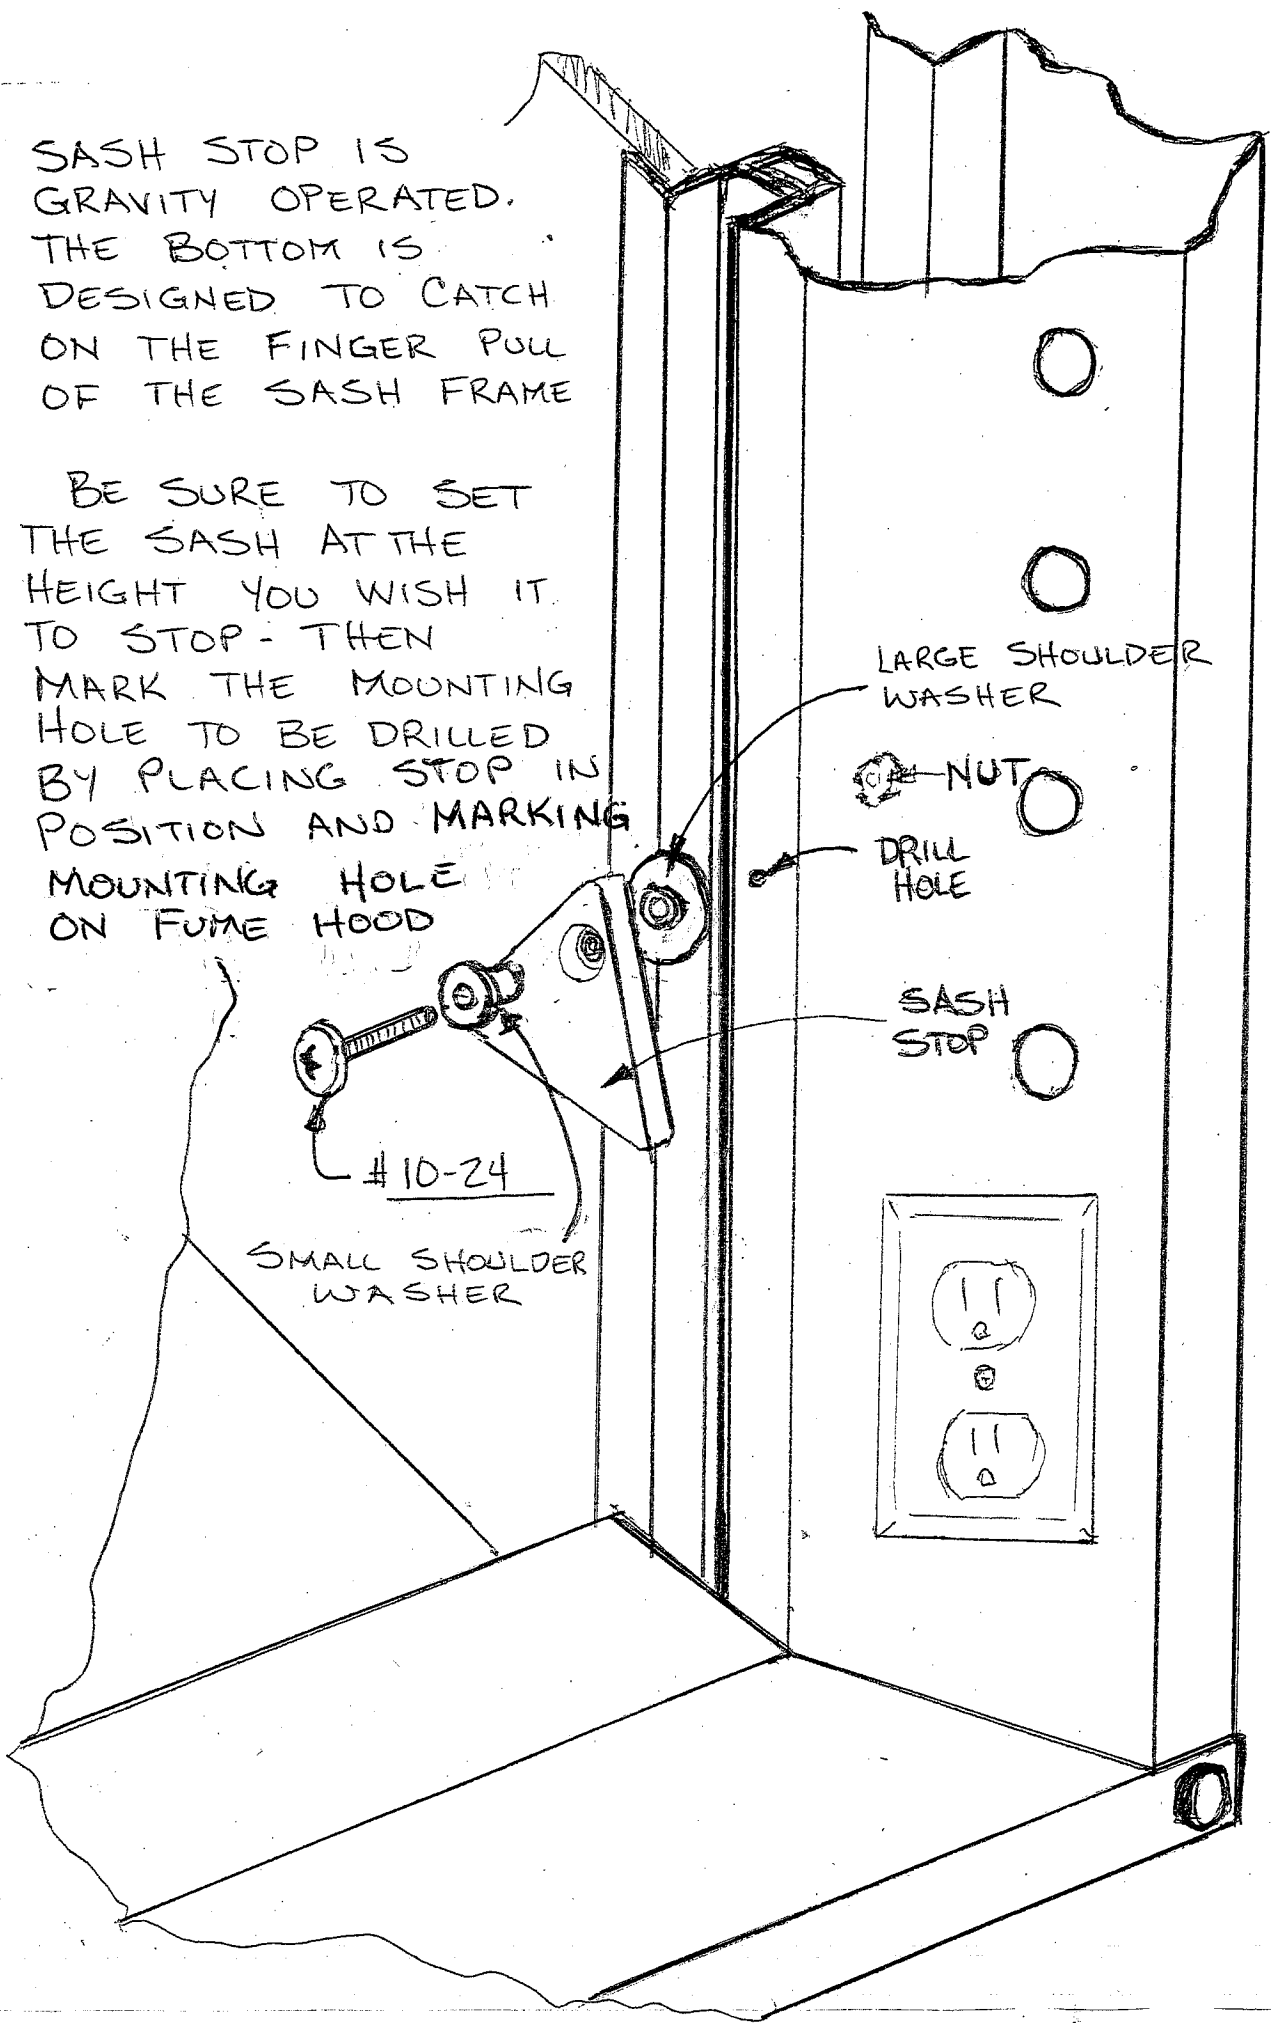 SASH STOP IS
GRAVITY OPERATED.
THE BOTTOM IS
DESIGNED TO CATCH
ON THE FINGER PULL
OF THE SASH FRAME
BE SURE TO SET
THE SASH AT THE
HEIGHT YOU WISH IT
TO STOP - THEN
MARK THE MOUNTING
HOLE TO BE DRILLED
BY PLACING STOP IN
POSITION AND MARKING
MOUNTING HOLE
ON FUME HOOD
LARGE SHOULDER
WASHER
NUT
DRILL
HOLE
SASH
STOP
#10-24
SMALL SHOULDER
WASHER